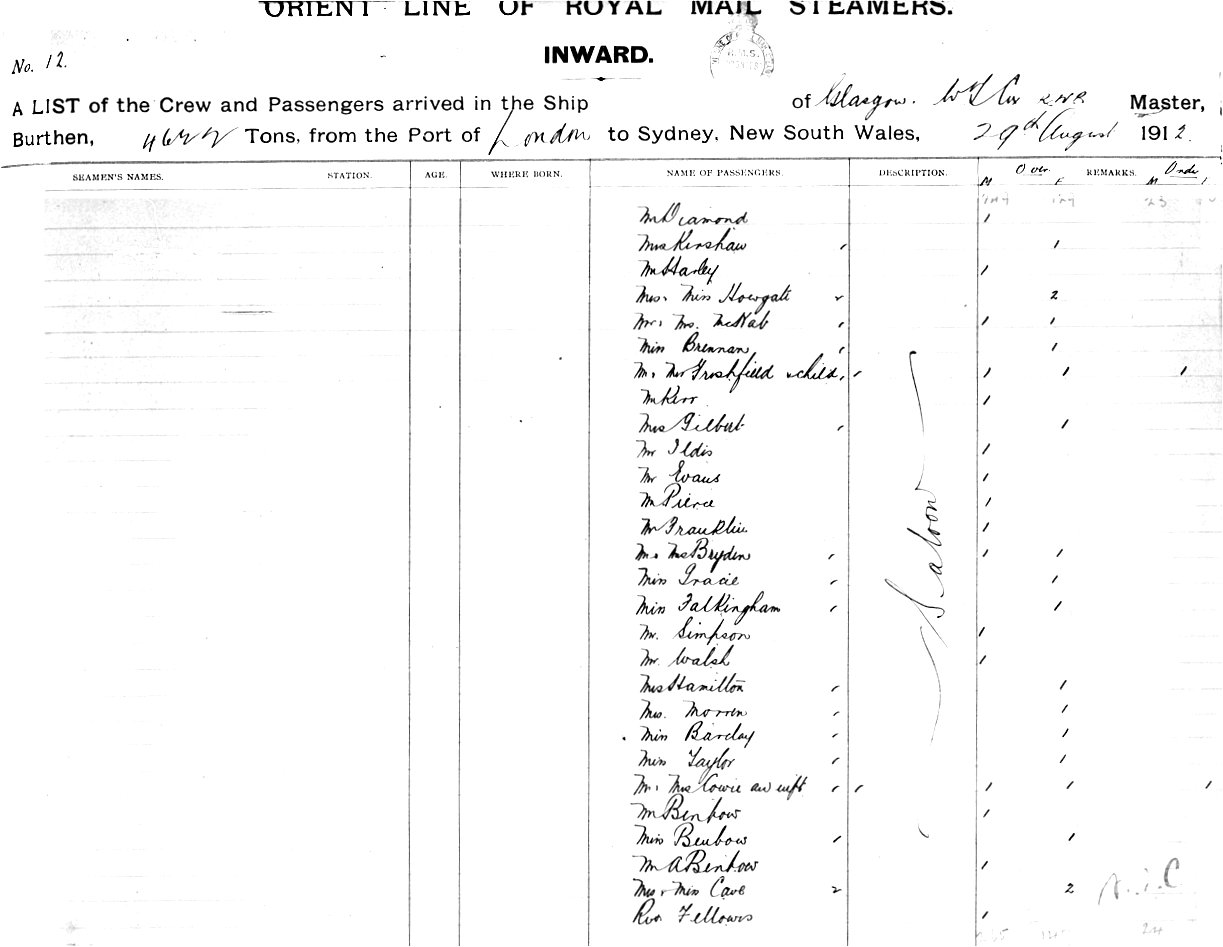 ORIENT LINE OF ROYAL MAIL STEAMERS.
No. 12.
INWARD.
A LIST of the Crew and Passengers arrived in the Ship of Glasgow. Master,
Burthen, Tons, from the Port of London to Sydney, New South Wales, 29th August 1912.
SEAMEN'S NAMES. STATION. AGE. WHERE BORN. NAME OF PASSENGERS. DESCRIPTION. REMARKS.
Over M F
M
Mr Diamond /
Mrs Kershaw / /
Mr Harley /
Mrs. Miss Howgate 2 2
Mr. Mrs. McNab / / /
Miss Brennan / /
Mr. Mrs Freshfield & child / / / / /
Mr Kerr /
Mrs Gilbert / /
Mr Ildis /
Mr Evans /
Mr Pierce /
Mr Franklin /
Mr. Mrs Bryden / / /
Miss Gracie / /
Miss Falkingham / /
Mr. Simpson /
Mr. Walsh /
Mrs Hamilton / /
Mrs. Morren / /
Miss Barclay / /
Miss Taylor / /
Mr. Mrs Cowie and inft / / / / /
Mr Benbow /
Miss Benbow / /
Mr A Benbow /
Mrs & Miss Cave 2 2
Rev Fellows /
Saloon
24